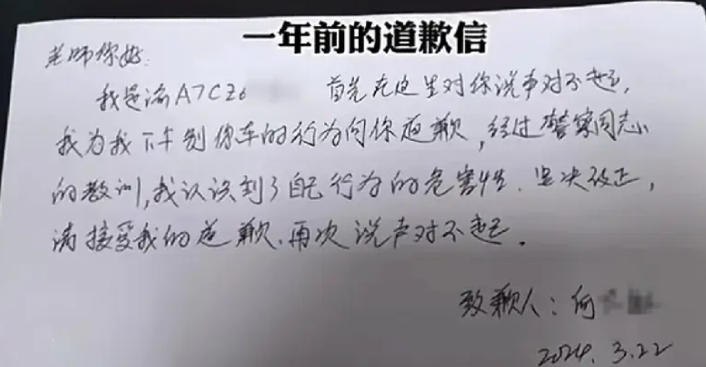 一年前的道歉信
老师你好:
我是渝A7CZ6 首先在这里对你说声对不起,
我为我下午别你车的行为向你道歉,经过警察同志
的教训,我认识到了自己行为的危害性.坚决改正,
请接受我的道歉.再次说声对不起.
致歉人:何
2024.3.22